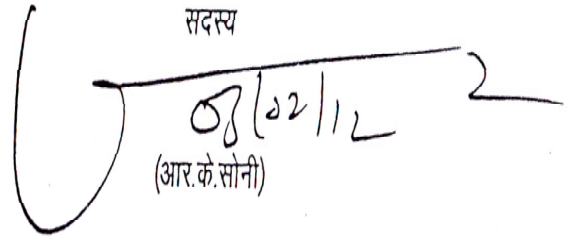 सदस्य
08/02/12
(आर.के.सोनी)